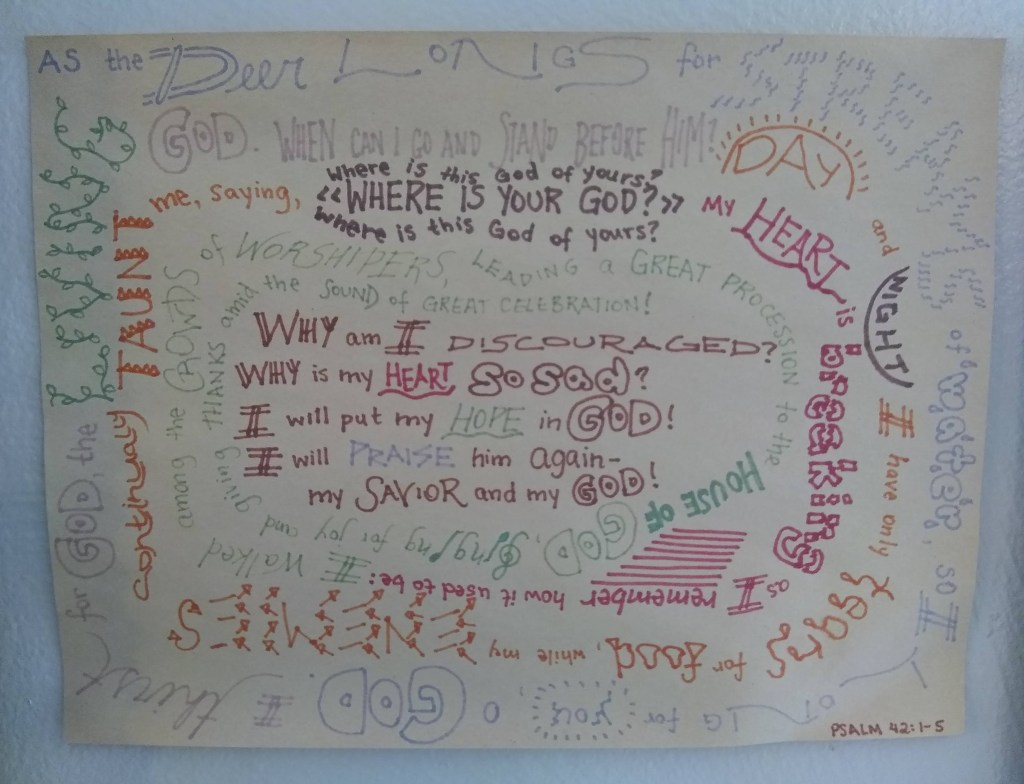 AS the Deer LONGS for
of water, so I
LONG for you, O GOD. I thirst
for GOD, the living
GOD. WHEN CAN I GO AND STAND BEFORE HIM?
DAY
and
NIGHT
I have only
tears
for food, while my ENEMIES
continually TAUNT
me, saying,
Where is this God of yours?
«WHERE IS YOUR GOD?»
Where is this God of yours?
MY HEART is breaking
as I remember how it used to be:
I walked
among the CROWDS
of WORSHIPERS, LEADING a GREAT PROCESSION to the
HOUSE OF
GOD, singing for joy and
giving THANKS amid the SOUND of GREAT CELEBRATION!
WHY am I DISCOURAGED?
WHY is my HEART so sad?
I will put my HOPE in GOD!
I will PRAISE him again-
my SAVIOR and my GOD!
PSALM 42:1-5